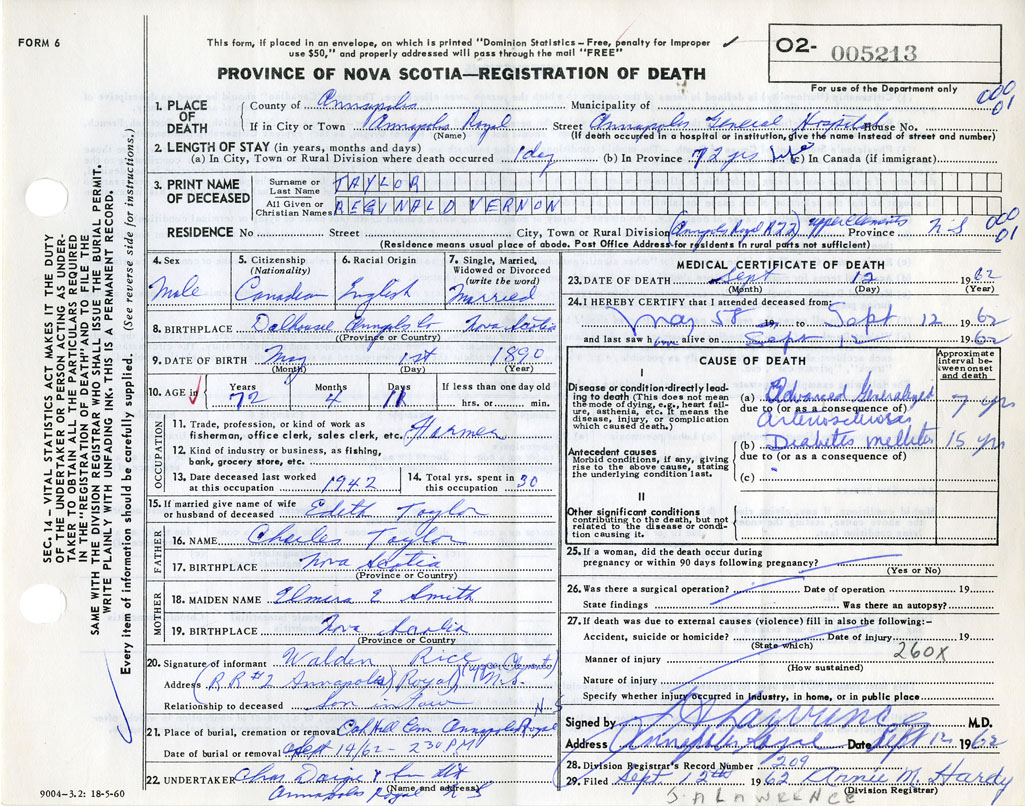 FORM 6
This form, if placed in an envelope, on which is printed "Dominion Statistics—Free, penalty for improper
use $50," and properly addressed will pass through the mail "FREE"
PROVINCE OF NOVA SCOTIA—REGISTRATION OF DEATH
02- 005213
For use of the Department only
000
01
1. PLACE OF DEATH
County of Annapolis Municipality of
If in City or Town Annapolis Royal Street Annapolis General Hospital House No.
(Name) (If death occurred in a hospital or institution, give the name instead of street and number)
2. LENGTH OF STAY (in years, months and days)
(a) In City, Town or Rural Division where death occurred 1 day (b) In Province 72 yrs life (c) In Canada (if immigrant)
3. PRINT NAME OF DECEASED
Surname or Last Name TAYLOR
All Given or Christian Names REGINALD VERNON
RESIDENCE No Street City, Town or Rural Division (Annapolis Royal RR2) Upper Clements Province N S
000
01
(Residence means usual place of abode. Post Office Address for residents in rural parts not sufficient)
4. Sex
Male
5. Citizenship (Nationality)
Canadian
6. Racial Origin
English
7. Single, Married, Widowed or Divorced (write the word)
Married
8. BIRTHPLACE Dalhousie Annapolis Co Nova Scotia
(Province or Country)
9. DATE OF BIRTH May 1st 1890
(Month) (Day) (Year)
10. AGE in Years Months Days If less than one day old
72 4 11 hrs. or min.
OCCUPATION
11. Trade, profession, or kind of work as
fisherman, office clerk, sales clerk, etc. Farmer
12. Kind of industry or business, as fishing,
bank, grocery store, etc.
13. Date deceased last worked
at this occupation 1942
14. Total yrs. spent in
this occupation 30
15. If married give name of wife
or husband of deceased Edith Taylor
FATHER
16. NAME Charles Taylor
17. BIRTHPLACE Nova Scotia
(Province or Country)
MOTHER
18. MAIDEN NAME Elmira E Smith
19. BIRTHPLACE Nova Scotia
(Province or Country
20. Signature of informant Walden Rice
Address (RR #2 Annapolis Royal) (Upper Clements) N.S.
Relationship to deceased Son in law N.S
21. Place of burial, cremation or removal Annapolis Royal
Date of burial or removal Sept 14/62 – 2 30 PM
22. UNDERTAKER Chas
(Name and address)
Annapolis Royal N S
9004-3.2: 18-5-60
MEDICAL CERTIFICATE OF DEATH
23. DATE OF DEATH Sept 12 1962
(Month) (Day) (Year)
24. I HEREBY CERTIFY that I attended deceased from:
May 58 19 to Sept 12 1962
and last saw him alive on Sept 12 1962
CAUSE OF DEATH
Approximate interval between onset and death
I
Disease or condition directly leading to death (This does not mean
the mode of dying, e.g., heart failure, asthenia, etc. It means the
disease, injury, or complication
which caused death.)
(a) Advanced Generalized 7 yrs
due to (or as a consequence of)
arteriosclerosis
(b) Diabetes mellitus 15 yrs
due to (or as a consequence of)
(c)
Antecedent causes
Morbid conditions, if any, giving
rise to the above cause, stating
the underlying condition last.
II
Other significant conditions
contributing to the death, but not
related to the disease or condition causing it.
25. If a woman, did the death occur during
pregnancy or within 90 days following pregnancy?
(Yes or No)
26. Was there a surgical operation? Date of operation 19
State findings Was there an autopsy?
27. If death was due to external causes (violence) fill in also the following:–
Accident, suicide or homicide? Date of injury 19
(State which)
260X
Manner of injury
(How sustained)
Nature of injury
Specify whether injury occurred in industry, in home, or in public place
Signed by Lawrence M.D.
Address Annapolis Royal Date Sept 12 1962
28. Division Registrar's Record Number 209
29. Filed Sept 12th 1962 Annie M. Hardy
(Division Registrar)
J. A LAWRENCE
SEC. 14 - VITAL STATISTICS ACT MAKES IT THE DUTY
OF THE UNDERTAKER OR PERSON ACTING AS UNDER-
TAKER TO OBTAIN ALL THE PARTICULARS REQUIRED
IN THE "REGISTRATION OF DEATH" AND TO FILE THE
SAME WITH THE DIVISION REGISTRAR WHO SHALL ISSUE THE BURIAL PERMIT.
WRITE PLAINLY WITH UNFADING INK. THIS IS A PERMANENT RECORD.
Every item of information should be carefully supplied. (See reverse side for instructions.)